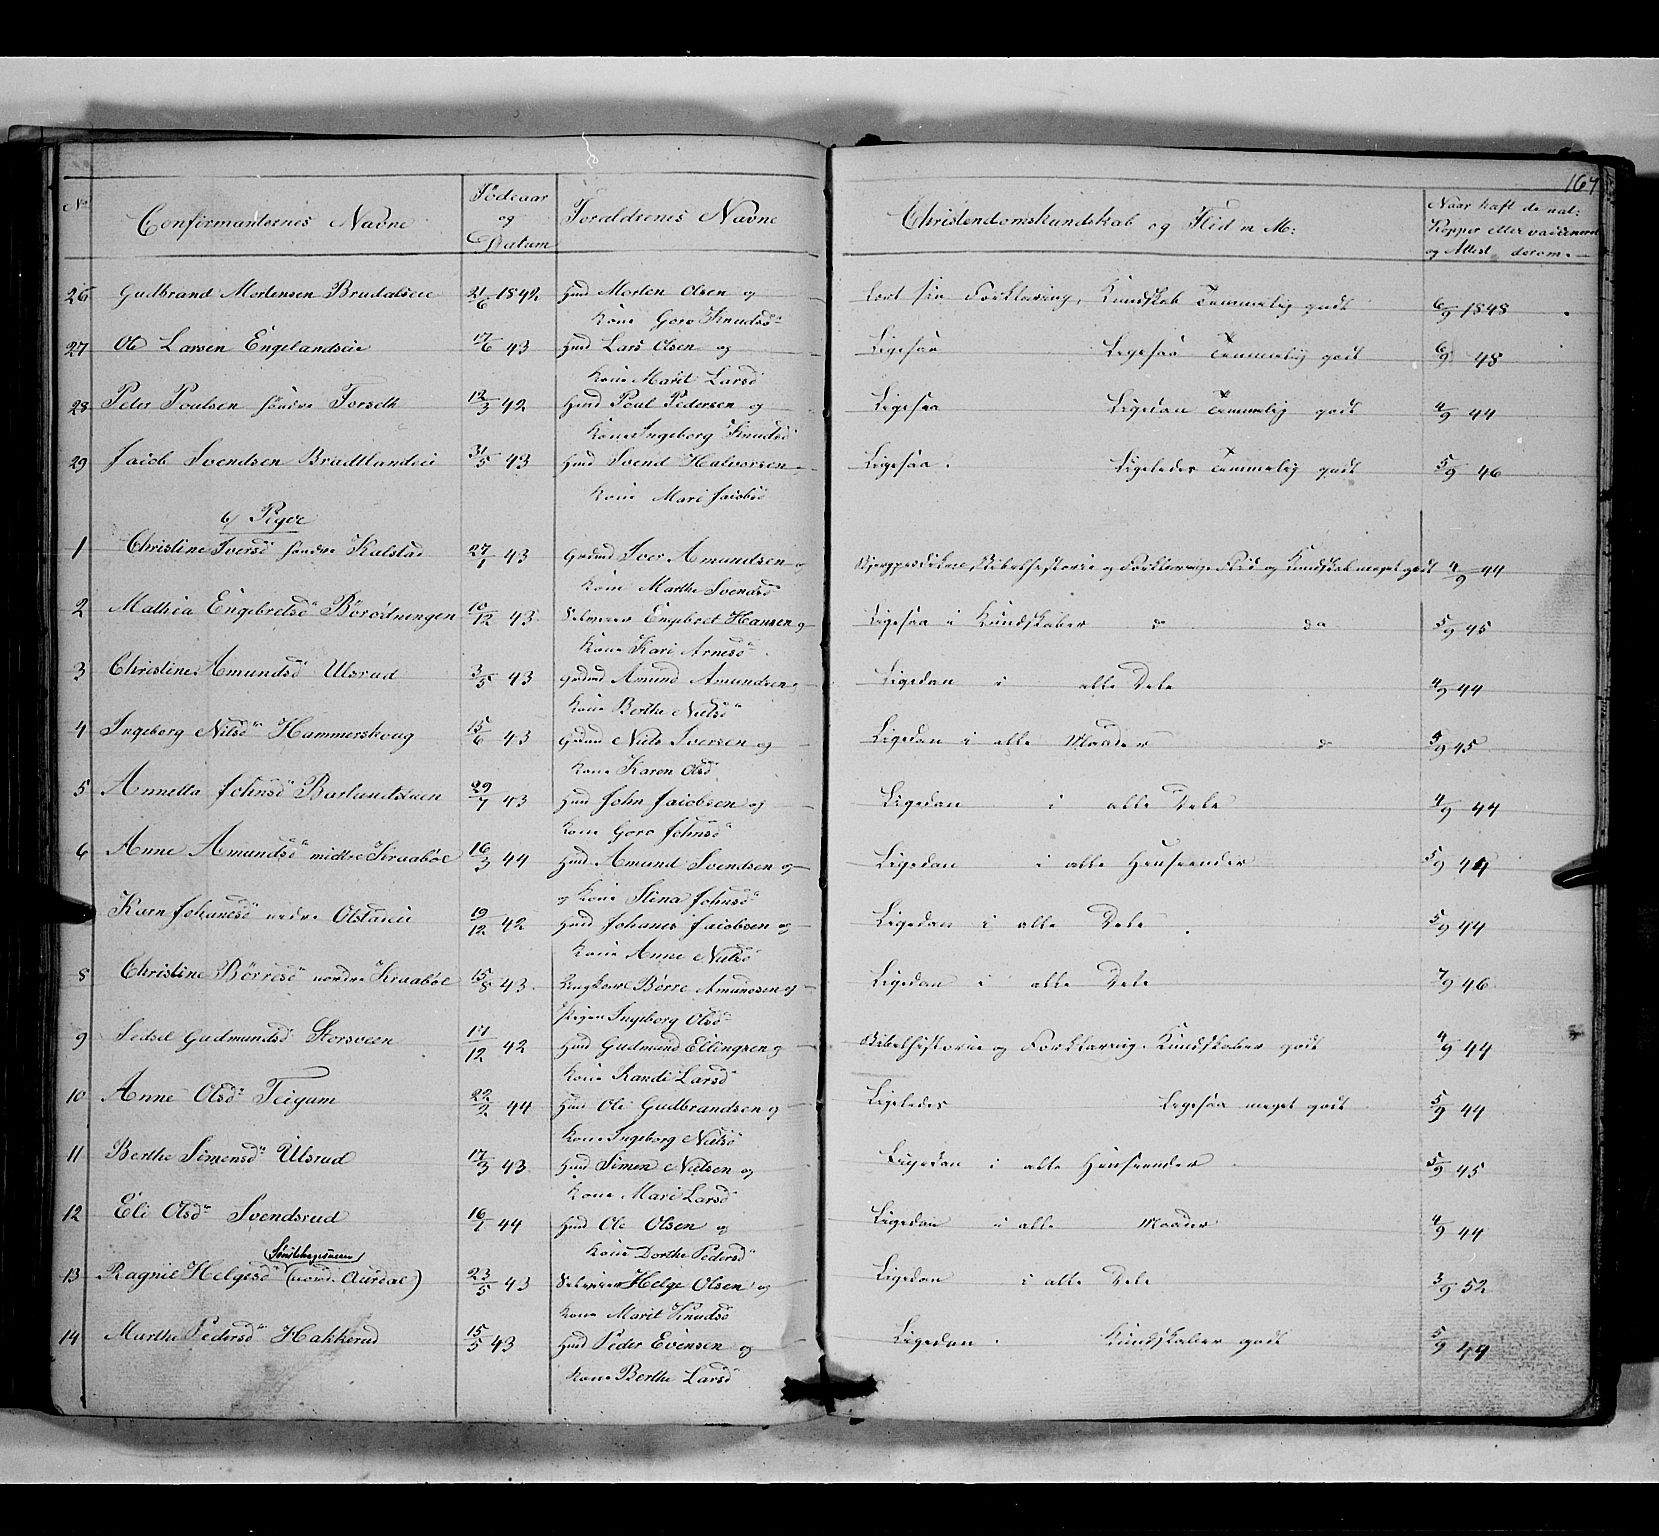 164
No Confirmanternes Navne Födeaar og Datum Foraldrenes Navne Christendomskundskab og Flid m M: Naar havt de nat: Kopper eller vaccineret og Attest derom.
26 Gudbrand Mortensen Brudalseie 21/6 1842 Hmd Morten Olsen og Lært sin Forklaring, Kundskab Temmelig godt 6/9 1848
Kone Goro Knudsd
27 Ole Larsen Engelandseie 17/6 43 Hmd Lars Olsen og Ligesaa Ligesaa Temmelig godt 6/9 48
Kone Marit Larsd
28 Peter Poulsen söndre Forseth 12/3 42 Hmd Poul Pedersen og Ligesaa Ligedan Temmelig godt 4/9 44
Kone Ingeborg Knudsd
29 Jacob Svendsen Bradtlandeie 31/5 43 Hmd Svend Halvorsen Ligesaa. Ligeledes Temmelig godt 5/9 46
Kone Mari Jacobsd
b) Piger
1 Christine Iversd söndre Kalstad 27/1 43 Grdmd Iver Amundsen og Bibelhistorie og Forklaring Flid og Kundskab meget godt 4/9 44
Kone Marthe Svendsd
2 Mathea Engebretsd Börödningen 10/12 43 Selveier Engebret Hansen og Ligesaa i Kundskaber do do 5/9 45
Kone Kari Arnesd
3 Christine Amundsd Ulsrud 3/5 43 Grdmd Amund Amundsen Ligedan i alle Dele 4/9 44
Kone Berthe Nielsd
4 Ingeborg Nilsd Hammerskoug 15/6 43 Grdmd Niels Iversen og Ligedan i alle Maader d 5/9 45
Kone Karen Olsd
5 Annetta Johnsd Barlundstuen 29/7 43 Hmd John Jacobsen og Ligedan i alle Dele 4/9 44
Kone Goro Johnsd
6 Anne Amundsd midtre Kraaböl 16/3 44 Hmd Amund Svendsen og Ligedan i alle Henseender 5/9 44
og Kone Stina Johnsd
Karn Johanesd nedre Olstadeie 19/12 42 Hmd Johanes Jacobsen og Ligedan i alle Dele 5/9 44
Kone Anne Nielsd
8 Christine Börresd nordre Kraaböl 15/8 43 Ungkarl Börre Amundsen og Ligedan i alle Dele 7/9 46
Pigen Ingeborg Olsd
9 Sedsel Gudmundsd Storsveen 14/12 42 Hmd Gudmund Ellingsen og Bibelhistorie og Forklaring. Kundskaber godt 4/9 44
Kone Randi Larsd
10 Anne Olsd Teigum 22/2 44 Hmd Ole Gudbrandsen og Ligeledes Ligesaa meget godt 5/9 44
Kone Ingeborg Nielsd
11 Berthe Simensd Ulsrud 17/3 43 Hmd Simen Nielsen og Ligedan i alle Henseender 5/9 45
Kone Mari Larsd
12 Eli Olsd Svendsrud 16/1 44 Hmd Ole Olsen og Ligedan i alle Maader 4/9 44
Kone Dorthe Pedersd
13 Ragnil Helgesd (nordre Aurdal) 23/5 43 Selveier Helge Olsen og Ligedan i alle Dele 3/9 52
Kone Marit Knudsd
14 Marthe Pedersd Hakkerud 15/5 43 Hmd Peder Evensen og Ligedan i Kundskaber godt 5/9 44
Kone Berthe Larsd